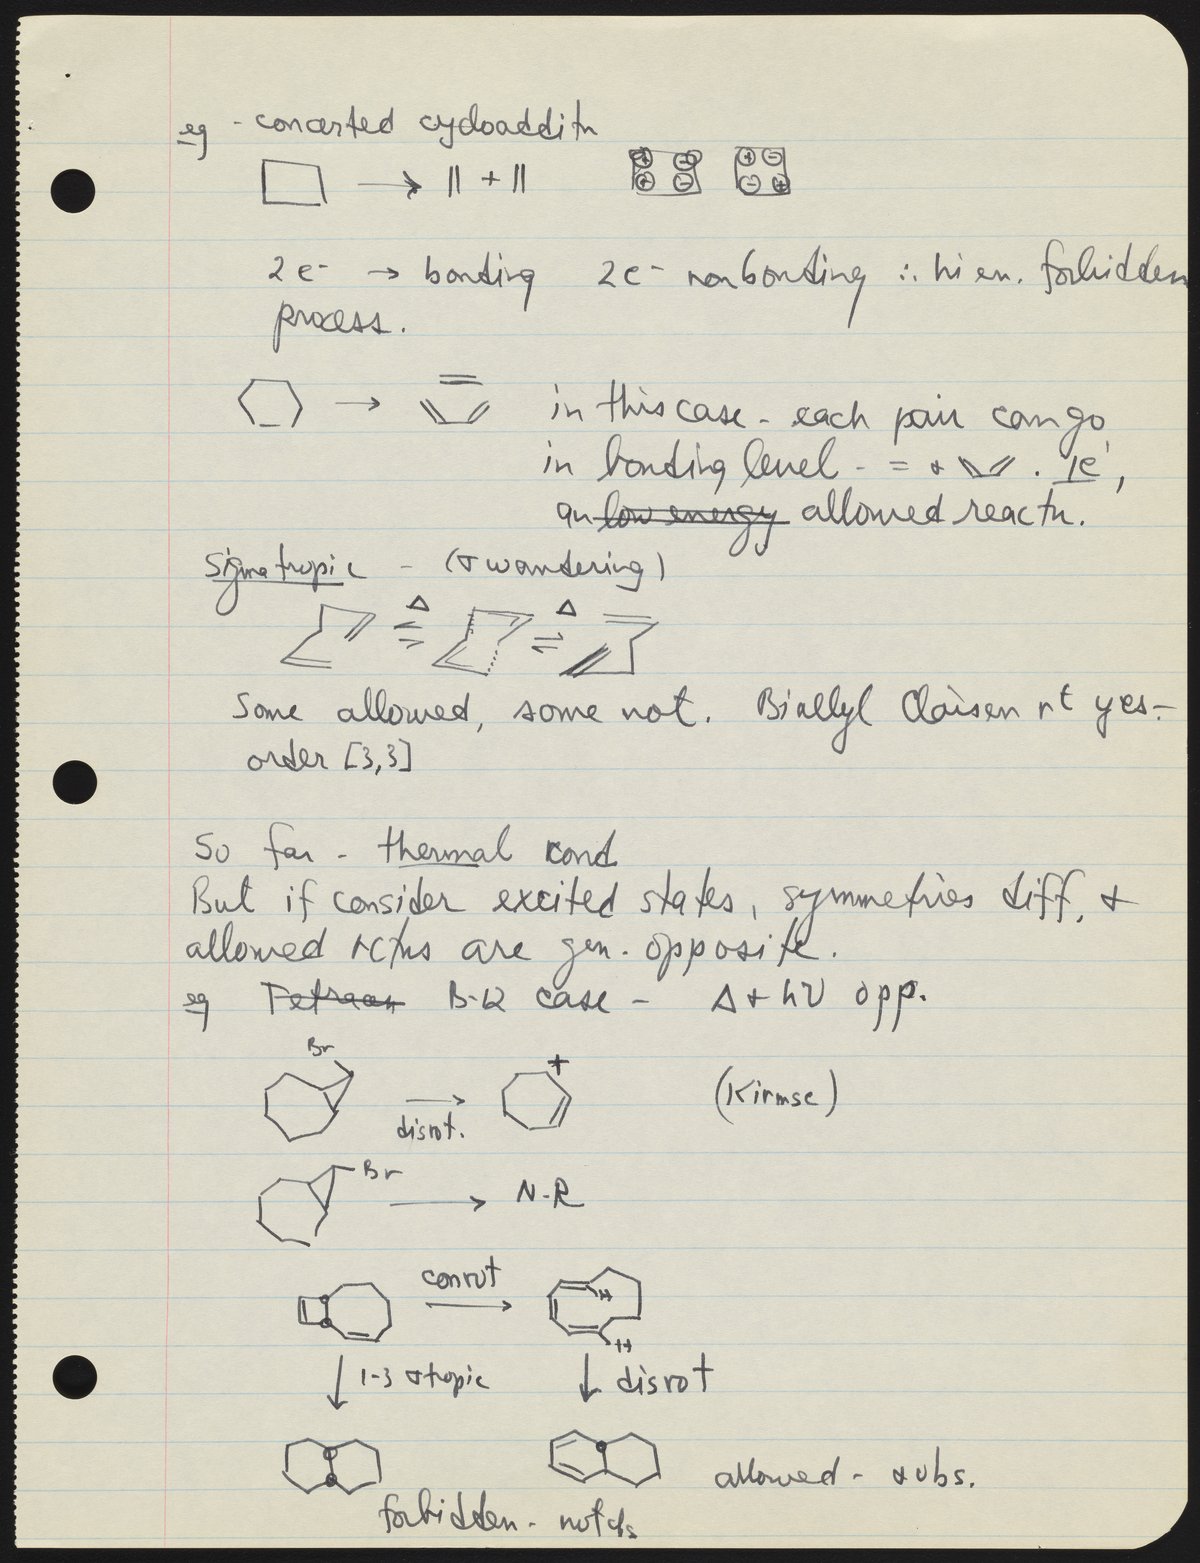 eg - concerted cycloadditn
→ || + || + - + - + - - +
2 e⁻ → bonding 2e⁻ nonbonding ∴ hi en. forbidden
process.
→ in this case - each pair can go
in bonding level - = + . ie,
an low energy allowed reactn.
Sigmatropic - (σ wandering)
Δ Δ
Some allowed, some not. Biallyl Claisen rt yes -
order [3,3]
So far - thermal cond
But if consider excited states, symmetries diff, &
allowed rctns are gen. opposite.
eg B-12 case - Δ + hν opp.
Br
+
→ (Kirmse)
disrot.
Br → N-R
conrot
→ H
H
↓ 1-3 σtropic ↓ disrot
allowed - & obs.
forbidden - not obs